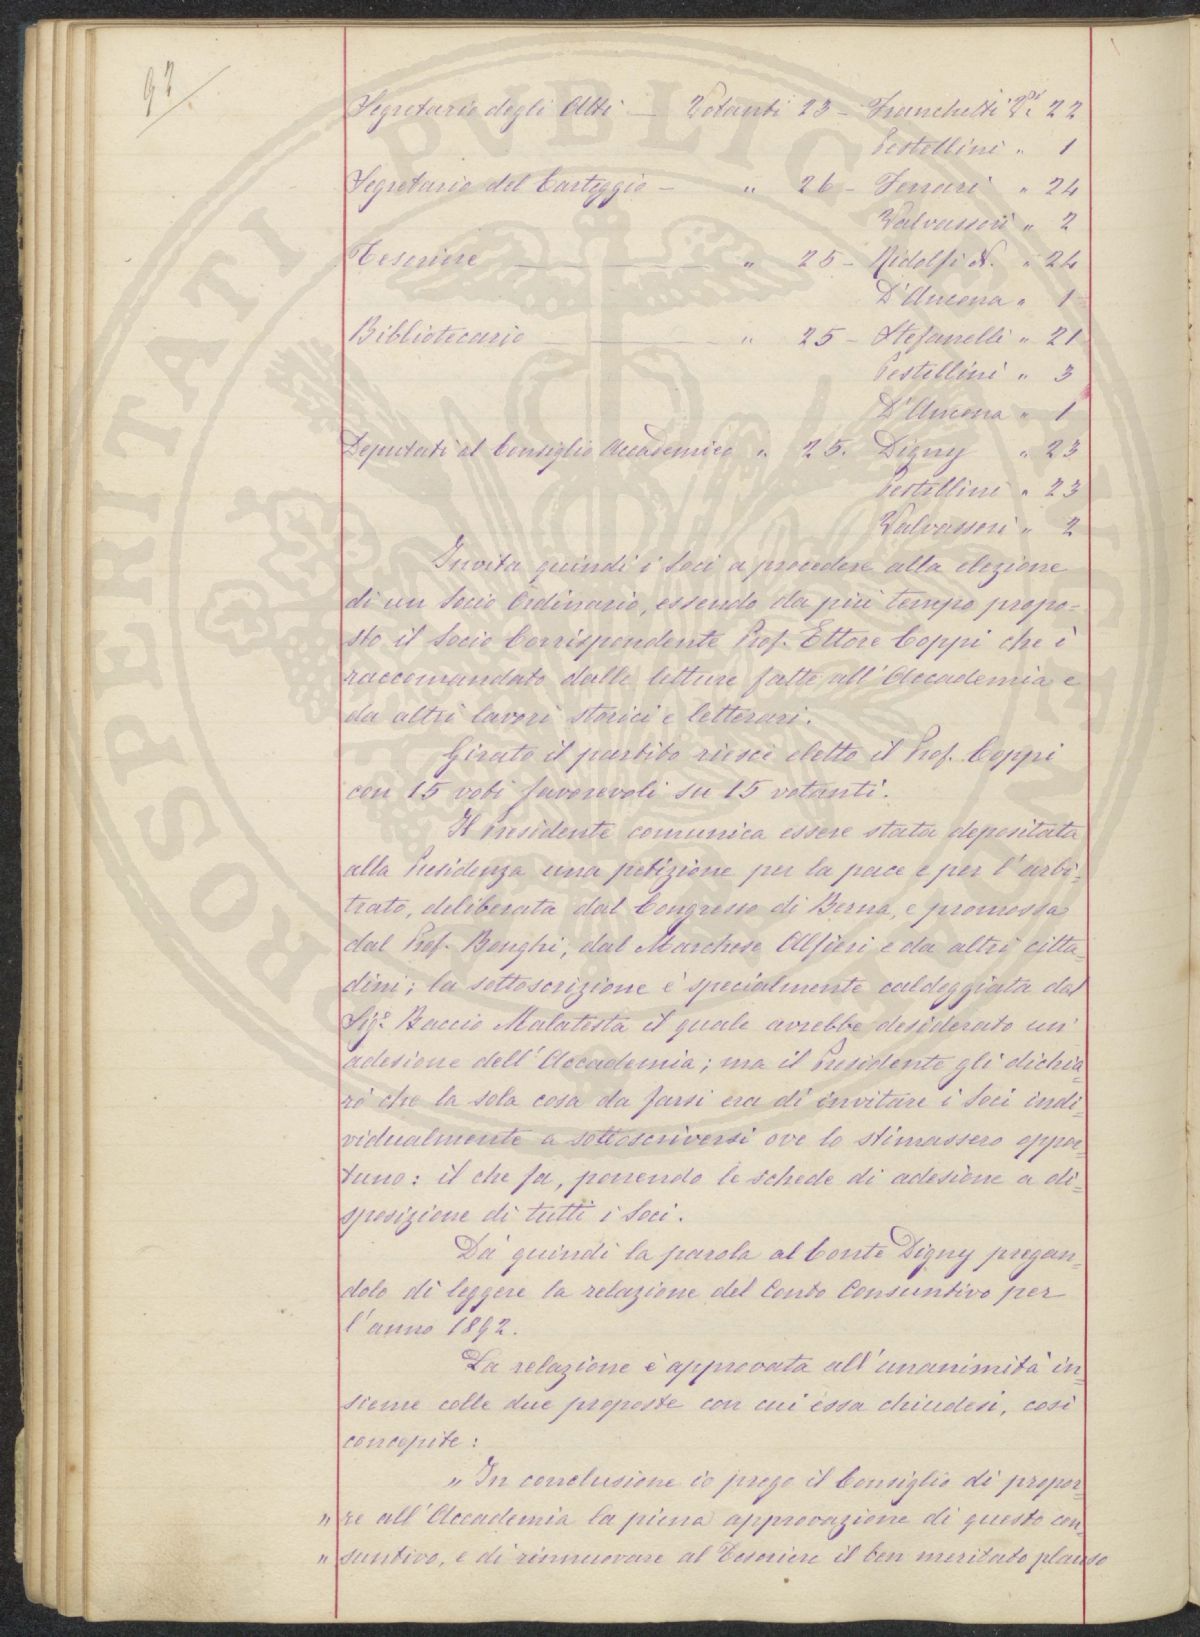 92
Segretario degli Atti — Votanti 23 – Franchetti Vi. 22
Pestellini „ 1
Segretario del Carteggio – „ 26 – Ferrari „ 24
Valvassori „ 2
Tesoriere — „ 25 – Ridolfi N. „ 24
D'Ancona „ 1
Bibliotecario — „ 25 – Stefanelli „ 21
Pestellini „ 3
D'Ancona „ 1
Deputati al Consiglio Accademico „ 25. Digny „ 23
Pestellini „ 23
Valvassori „ 2
Invita quindi i Soci a procedere alla elezione
di un Socio Ordinario, essendo da più tempo propo=
sto il Socio Corrispondente Prof. Ettore Coppi che è
raccomandato dalle letture fatte all'Accademia e
da altri lavori storici e letterari.
Girato il partito riesce eletto il Prof. Coppi
con 15 voti favorevoli su 15 votanti.
Il Presidente comunica essere stata depositata
alla Presidenza una petizione per la pace e per l'arbi=
trato, deliberata dal Congresso di Berna, e promossa
dal Prof. Bonghi, dal Marchese Alfieri e da altri citta=
dini; la sottoscrizione è specialmente caldeggiata dal
Sig.e Baccio Malatesta il quale avrebbe desiderato un'
adesione dell'Accademia; ma il Presidente gli dichia=
rò che la sola cosa da farsi era di invitare i Soci indi=
vidualmente a sottoscriversi ove lo stimassero oppor=
tuno: il che fa, ponendo le schede di adesione a di=
sposizione di tutti i Soci.
Dà quindi la parola al Conte Digny pregan=
dolo di leggere la relazione del Conto Consuntivo per
l'anno 1892.
La relazione è approvata all'unanimità in=
sieme colle due proposte con cui essa chiudesi, così
concepite:
„ In conclusione io prego il Consiglio di propor=
„ re all'Accademia la piena approvazione di questo con=
„ suntivo, e di rinnuovare al Tesoriere il ben meritato plauso
PROSPERITATI PVBLICAE AVGENDAE